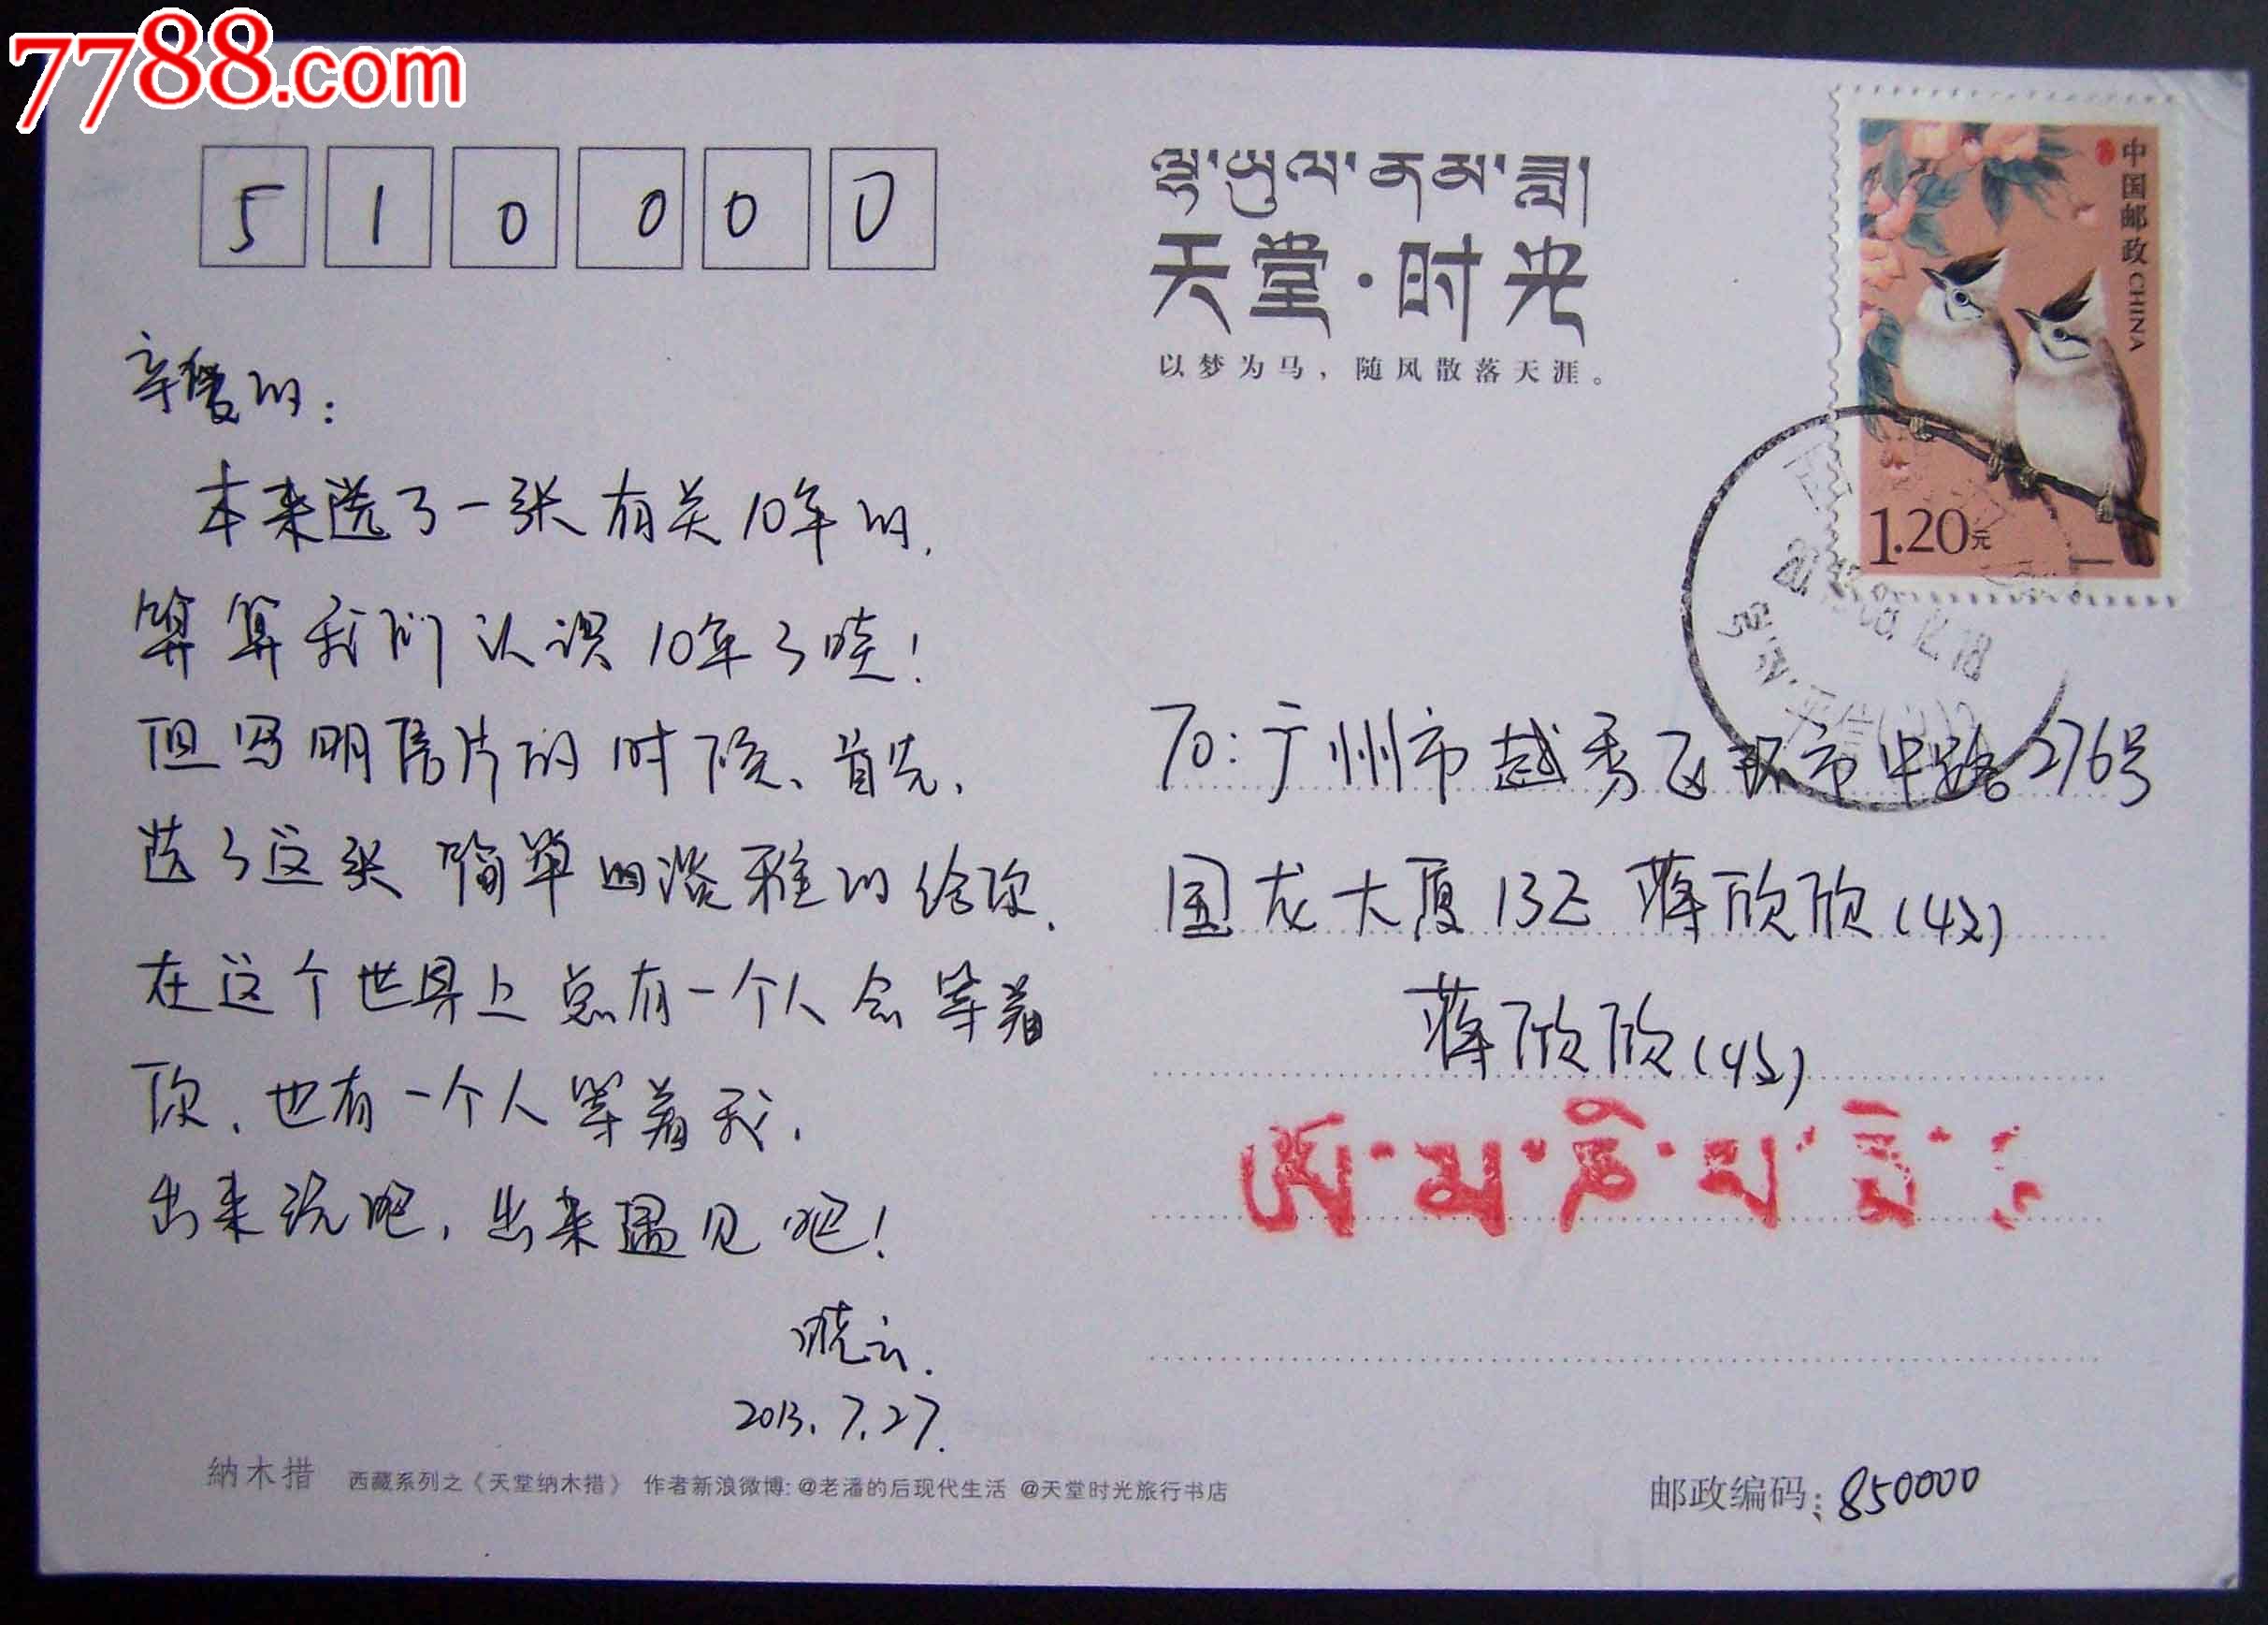 7788.com
510000
ལྷ་ཡུལ་ནམ་ཟླ།
天堂·时光
以梦为马，随风散落天涯。
中国邮政 CHINA
1.20元
亲爱的：
本来选了一张有关10年的,
算算我们认识10年了哇！
但写明信片的时候、首先,
选了这张简单的淡雅的给你.
在这个世界上总有一个人会等着
你,也有一个人等着我,
出来玩吧,出来遇见吧！
晓云.
2013.7.27.
To:广州市越秀区环市中路276号
国龙大厦13E 蒋欣欣(收)
蒋欣欣(收)
ཨོཾ་མ་ཎི་པ་
納木措 西藏系列之《天堂纳木措》 作者新浪微博:@老潘的后现代生活 @天堂时光旅行书店
邮政编码:850000